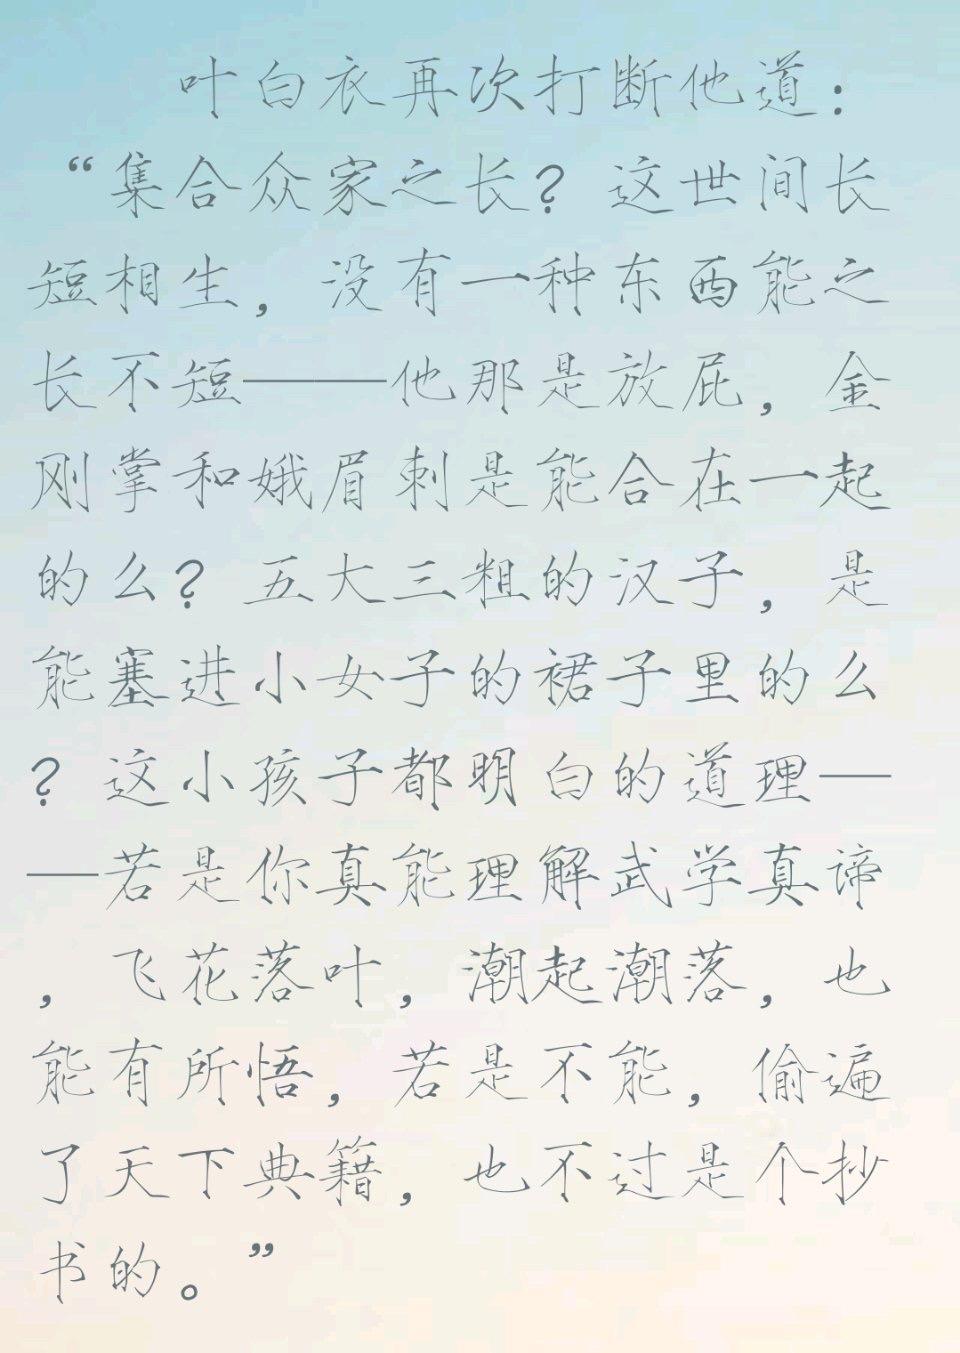 叶白衣再次打断他道：
“集合众家之长？这世间长
短相生，没有一种东西能之
长不短——他那是放屁，金
刚掌和娥眉刺是能合在一起
的么？五大三粗的汉子，是
能塞进小女子的裙子里的么
？这小孩子都明白的道理—
—若是你真能理解武学真谛
，飞花落叶，潮起潮落，也
能有所悟，若是不能，偷遍
了天下典籍，也不过是个抄
书的。”